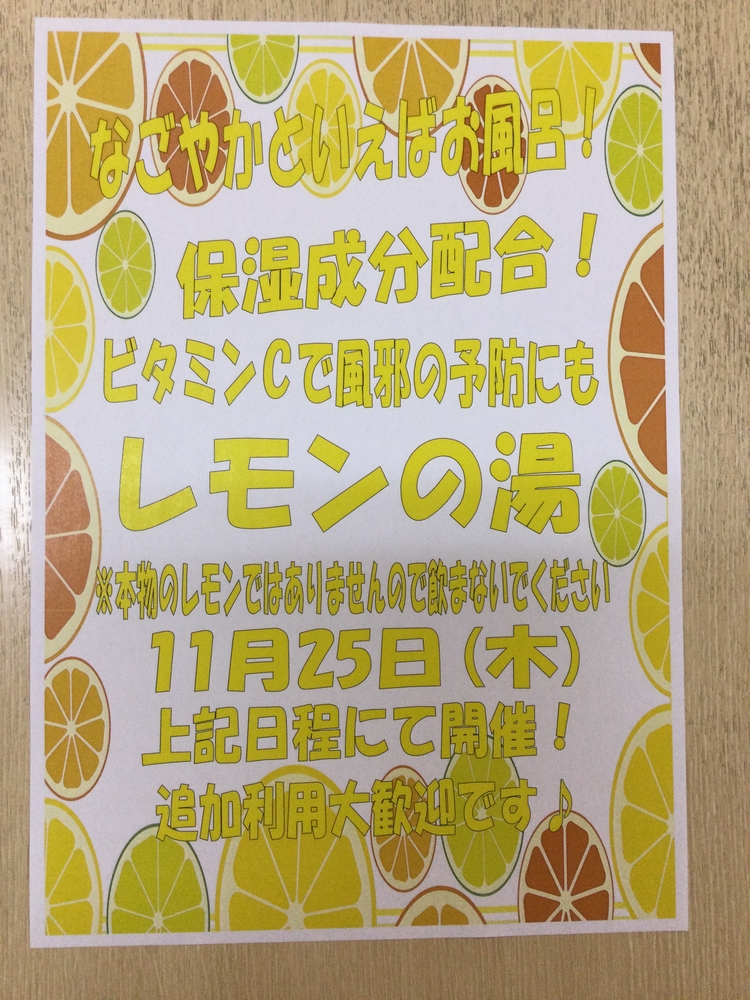 なごやかといえばお風呂！
保湿成分配合！
ビタミンCで風邪の予防にも
レモンの湯
※本物のレモンではありませんので飲まないでください
11月25日(木)
上記日程にて開催！
追加利用大歓迎です♪